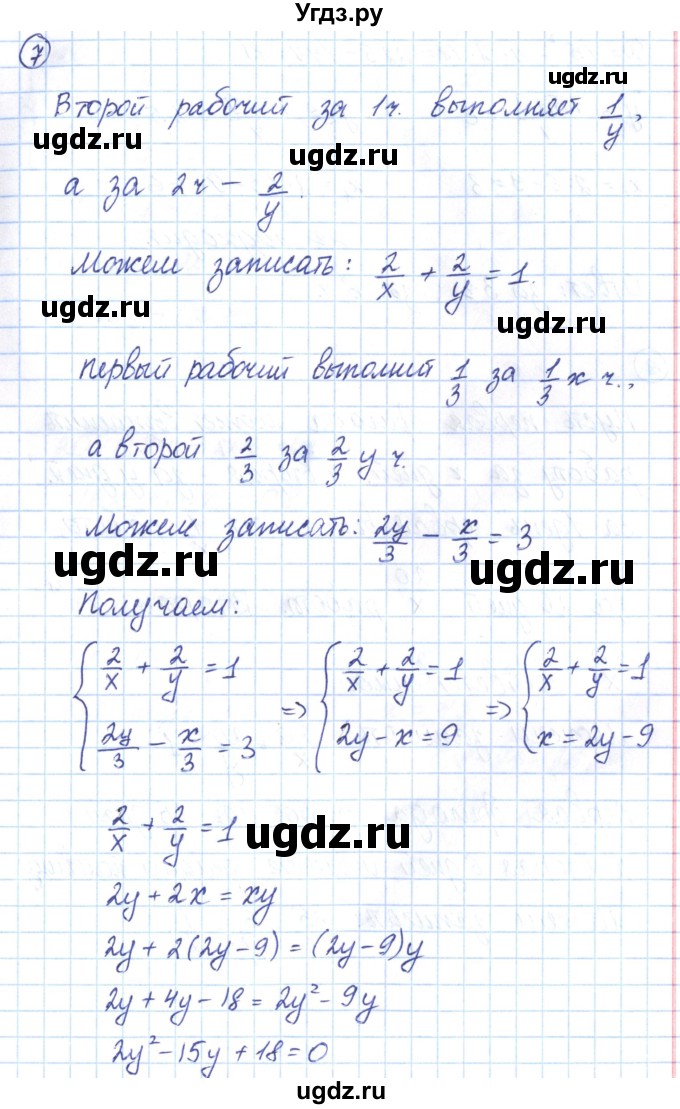 Угдз.ру
7
ugdz.ru
Второй рабочий за 1ч. выполняет 1/y,
ugdz.ru
ugdz.ru
а за 2ч – 2/y.
Можем записать: 2/x + 2/y = 1.
ugdz.ru
ugdz.ru
первый рабочий выполнит 1/3 за 1/3 x ч.,
а второй 2/3 за 2/3 y ч.
Можем записать: 2y/3 – x/3 = 3
ugdz.ru
ugdz.ru
Получаем:
{ 2/x + 2/y = 1 => { 2/x + 2/y = 1 => { 2/x + 2/y = 1
2y/3 – x/3 = 3 2y – x = 9 x = 2y – 9
2/x + 2/y = 1
ugdz.ru
2y + 2x = xy
2y + 2(2y – 9) = (2y – 9)y
2y + 4y – 18 = 2y² – 9y
2y² – 15y + 18 = 0
ugdz.ru